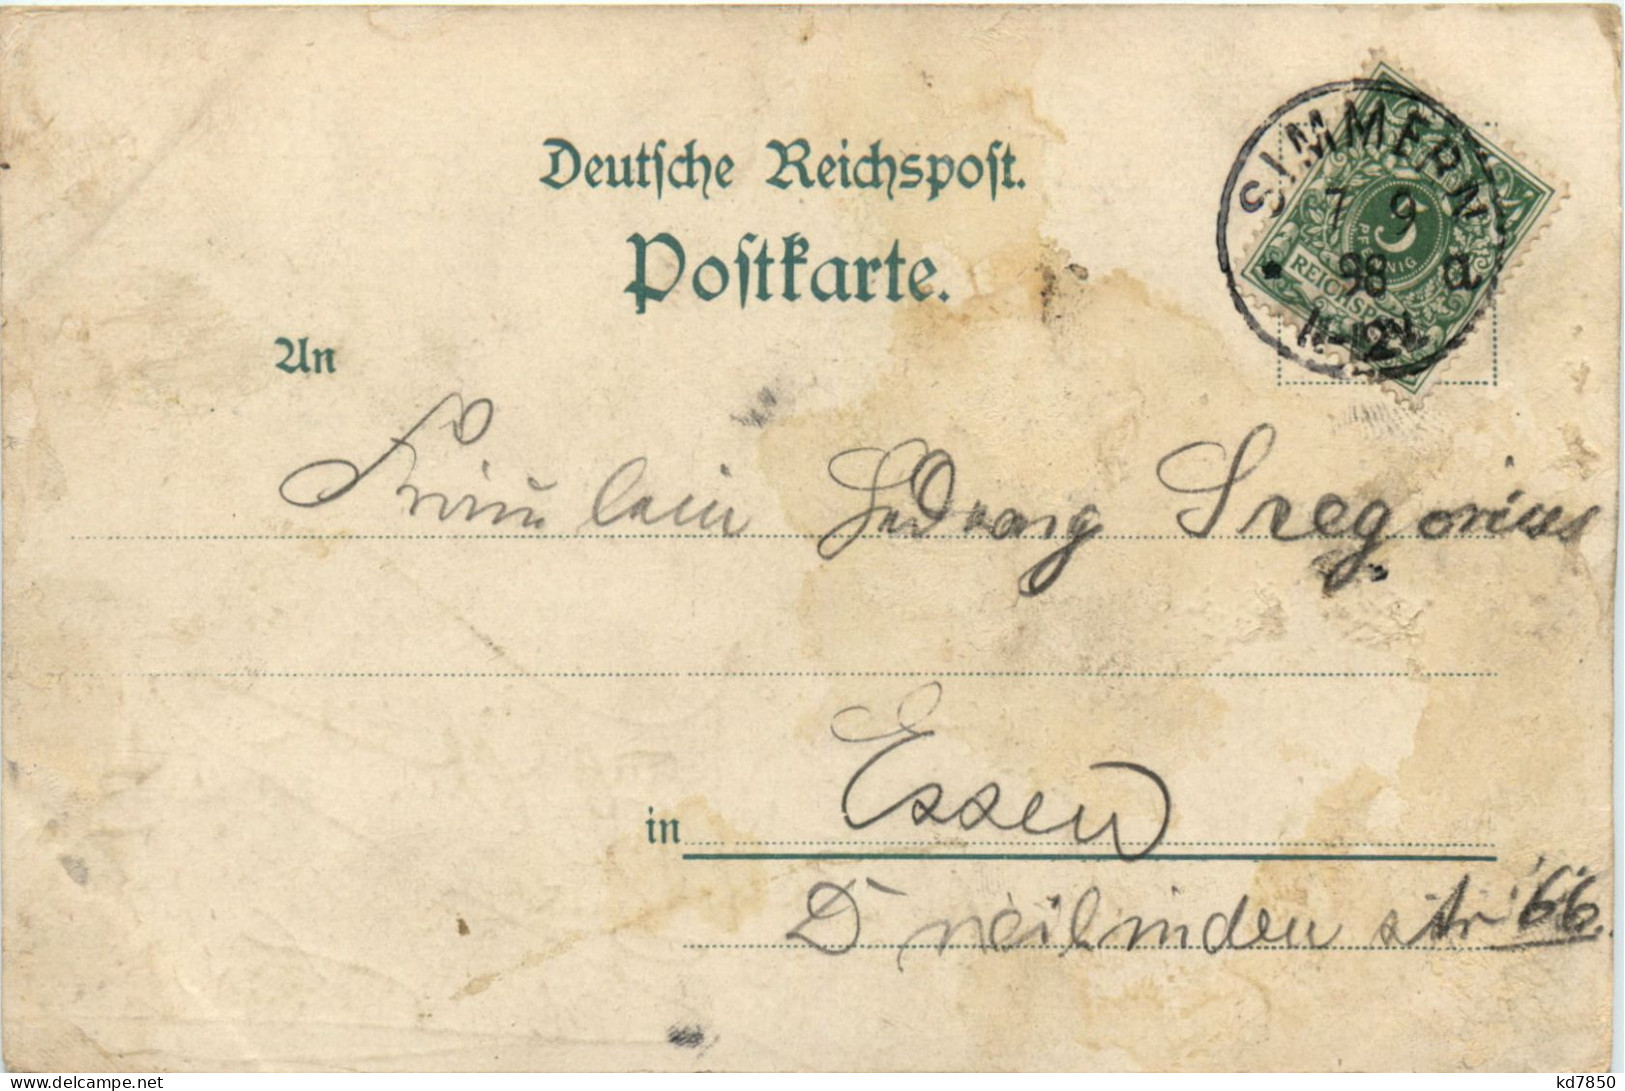 Deutsche Reichspost.
Postkarte.
SIMMERN
7 9
98 a
11-12V.
5
PFENNIG
REICHSPOST
An
Fräulein Hedwig Gregorius
in Essen
Dreilinden str 66.
delcampe.net
kd7850